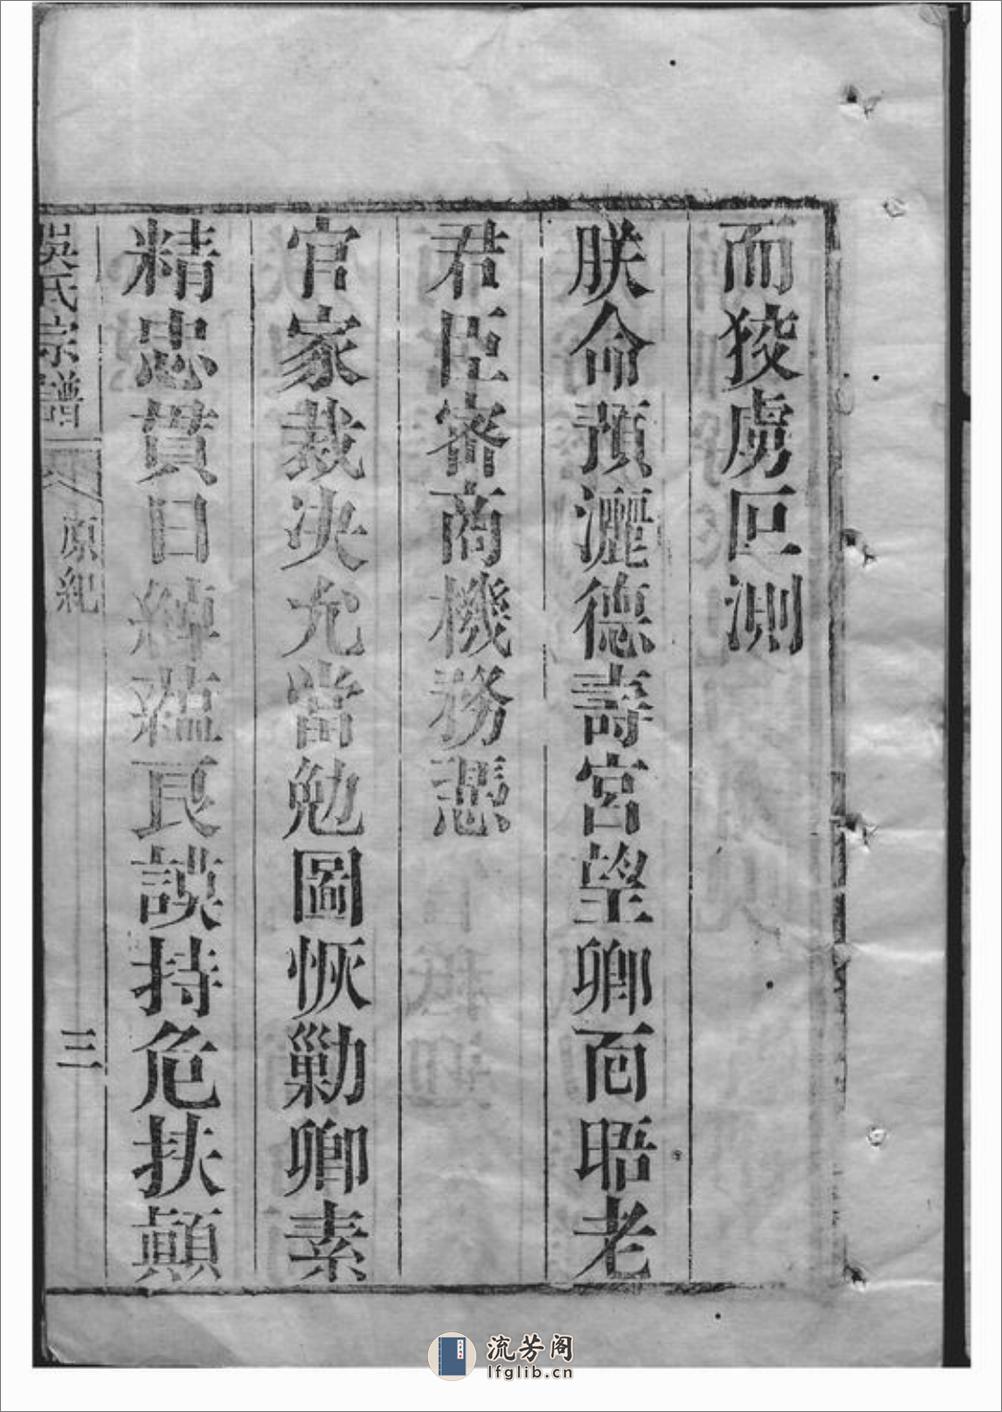 而狡虜叵測
朕命預灑德壽宮望卿面晤老
君臣審商機務憑
官家裁決允當勉圖恢勦卿素
精忠貫日綽蘊良謨持危扶顛
吳氏宗譜 原紀 三
流芳阁
lfglib.cn